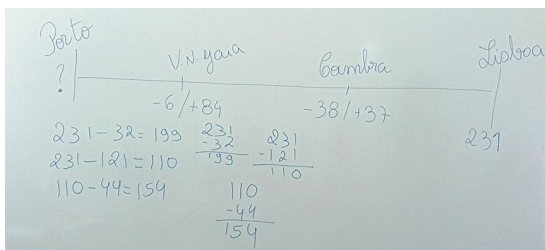 Porto
V.N. gaia
Coimbra
Lisboa
?
-6/+84
-38/+37
231
231-32=199
231-121=110
110-44=154
231
-32
199
231
-121
110
110
-44
154